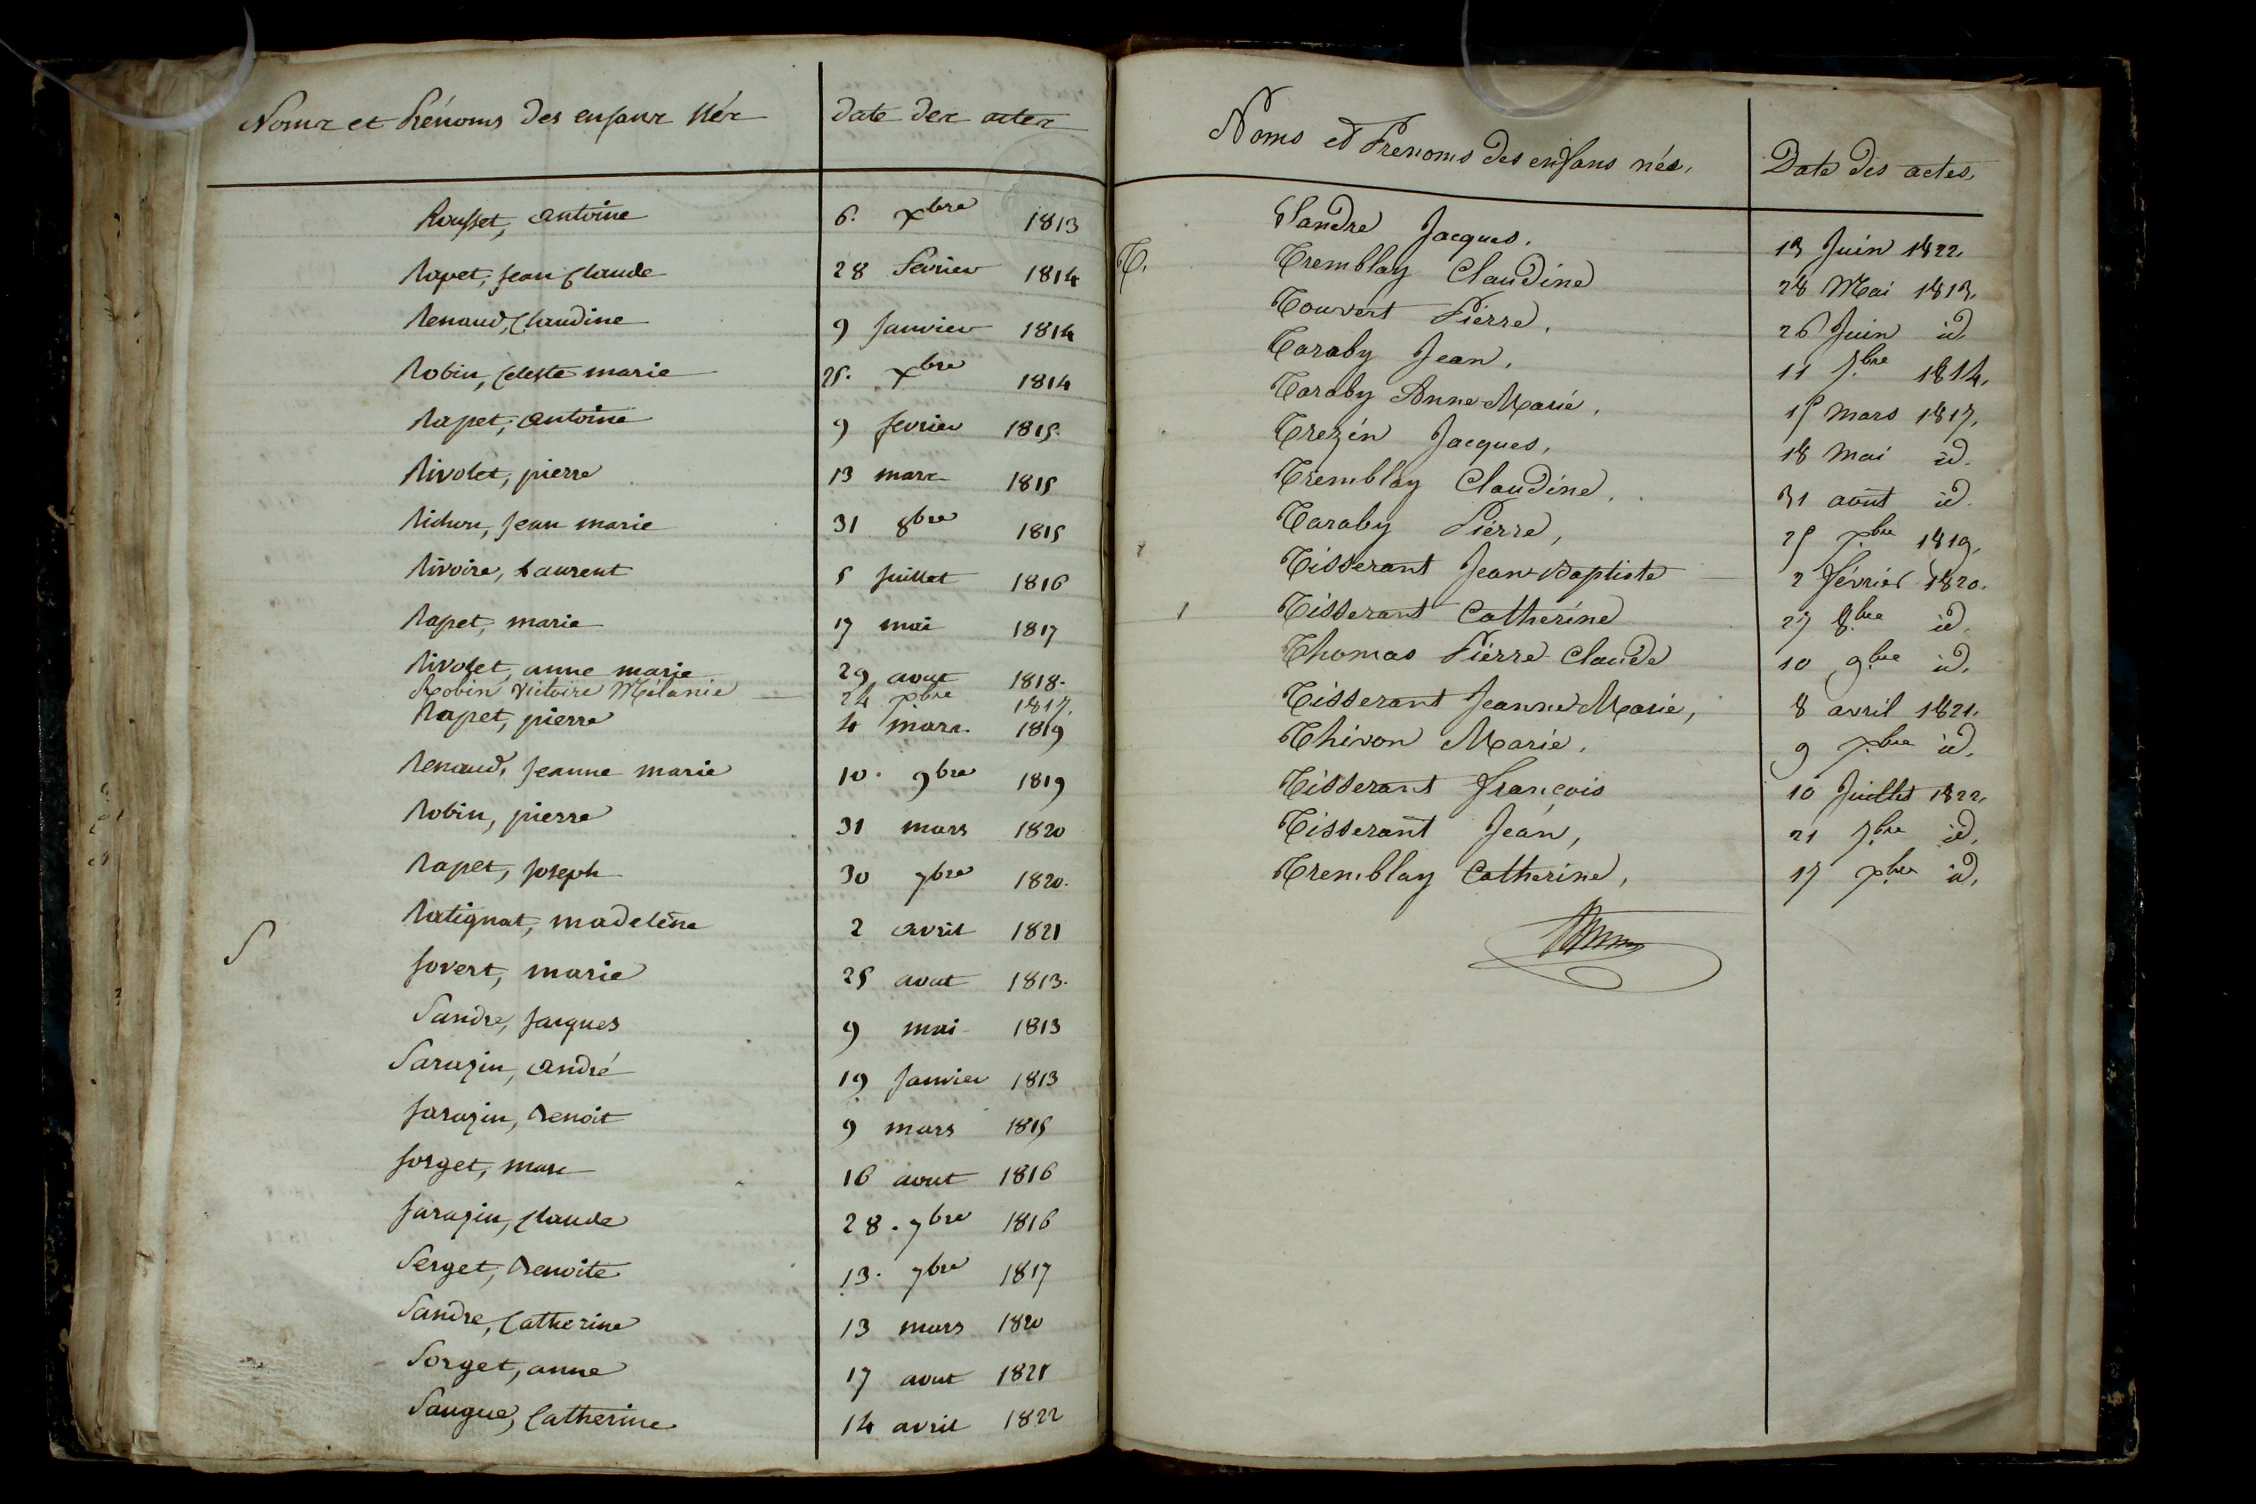 Noms et Prénoms des enfans Nés date des actes
Rousset, antoine 6. xbre 1813
Rapet, jean Claude 28 fevrier 1814
Renaud, Claudine 9 janvier 1814
Robin, Celeste marie 25. xbre 1814
Rapet, antoine 9 fevrier 1815.
Rivolet, pierre 13 mars 1815
jean marie 31 8bre 1815
Rivoire, Laurent 5 juillet 1816
Rapet, marie 17 mai 1817
Rivolet, anne marie 29 aout 1818.
Robin Victoire Mélanie 24 xbre 1817.
Rapet, pierre 4 mars 1819
Renaud, jeanne marie 10. 9bre 1819
Robin, pierre 31 mars 1820
Rapet, joseph 30 7bre 1820.
Ratignat, madelène 2 avril 1821
S
Sovert, marie 25 aout 1813.
Sandre, jacques 9 mai 1813
Sarazin, andré 19 janvier 1813
Sarazin, Benoit 9 mars 1815
Sorget, marc 16 aout 1816
Sarazin, Claude 28. 7bre 1816
Serget, Benoite 13. 7bre 1817
Sandre, Catherine 13 mars 1820
Sorget, anne 17 aout 1821
Saugue, Catherine 14 avril 1822
Noms et Prenoms des enfans nés. Date des actes.
Sandre Jacques. 13 Juin 1822.
T. Tremblay Claudine 28 Mai 1813.
Touvert Pierre. 26 Juin id.
Taraby Jean. 11 7bre 1814.
Taraby Anne Marie. 15 mars 1817.
Trezin Jacques. 18 mai id.
Tremblay Claudine. 31 août id.
Taraby Pierre, 25 xbre 1819.
Tisserant Jean Baptiste 2 février 1820.
1 Tisserant Catherine 27 8bre id.
Thomas Pierre Claude 10 9bre id.
Tisserant Jeanne Marie, 8 avril 1821.
Thivon Marie. 9 xbre id.
Tisserant françois 10 Juillet 1822.
Tisserant Jean, 21 7bre id.
Tremblay Catherine, 17 xbre id.